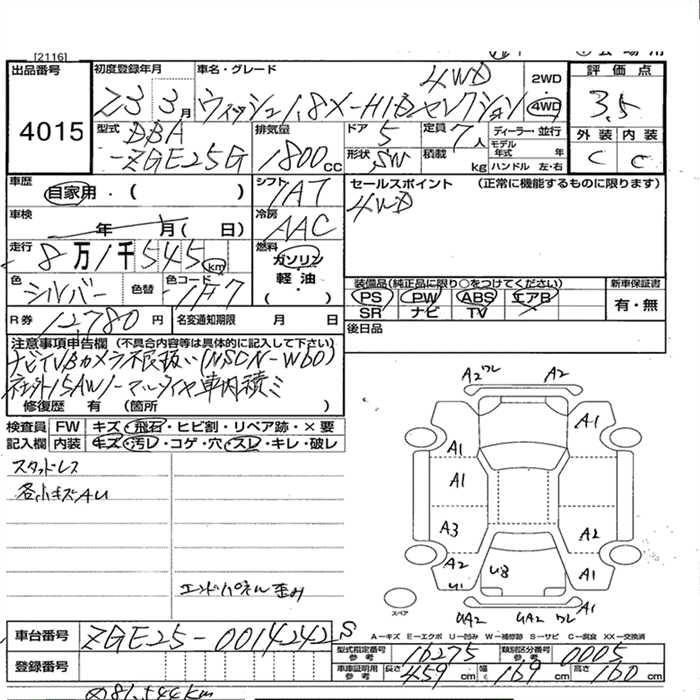 [2116]
出品番号
4015
初度登録年月
23 3月
車名・グレード
4WD
ウィッシュ1.8X-HIDセレクション
2WD
4WD
評価点
3.5
外装 内装
C C
型式
DBA
-ZGE25G
排気量
1800cc
ドア 5
定員 7人
ディーラー・並行
モデル年式 年
形状 SW
積載 kg
ハンドル 左・右
車歴
自家用・( )
シフト
7AT
セールスポイント (正常に機能するものに限ります)
4WD
車検
年 月( 日)
冷房
AAC
走行
8万1千545km
燃料
ガソリン
軽油
・
( )
色
シルバー
色替
色コード
1F7
装備品(純正品に限り○をつけてください)
新車保証書
PS PW ABS エアB
SR ナビ TV
有・無
R券 12,780円
名変通知期限 月 日
後日品
注意事項申告欄 (不具合内容等は具体的に記入して下さい)
ナビTVBカメラ不良扱い(NSCN-W60)
社外15AWノーマルタイヤ車内積ミ
修復歴 有 (箇所 )
検査員記入欄
FW キズ・飛石・ヒビ割・リペア跡・×要
内装 キズ・汚レ・コゲ・穴・スレ・キレ・破レ
スタッドレス
各小キズAU
エンドパネル歪み
A2ワレ A2
A1
A1
A1 A1
A3 A2
A2 U3 A2
U1 A1
UA2 UA2 ワレ A1
スペア
A-キズ E-エクボ U-凹み W-補修跡 S-サビ C-腐食 XX-交換済
車台番号
ZGE25-0014242 S
登録番号
型式指定番号 参考 16275
類別区分番号 参考 0005
車庫証明用 参考 長さ 459cm 幅 169cm 高さ 160cm
81,544km